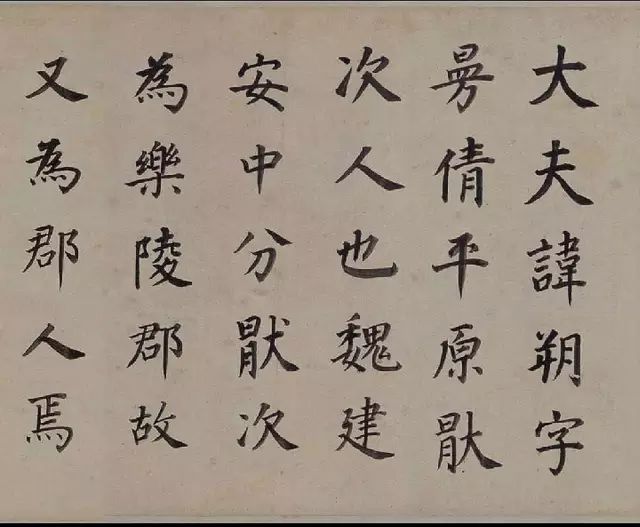 大夫諱朔字
曼倩平原猒
次人也魏建
安中分猒次
為樂陵郡故
又為郡人焉